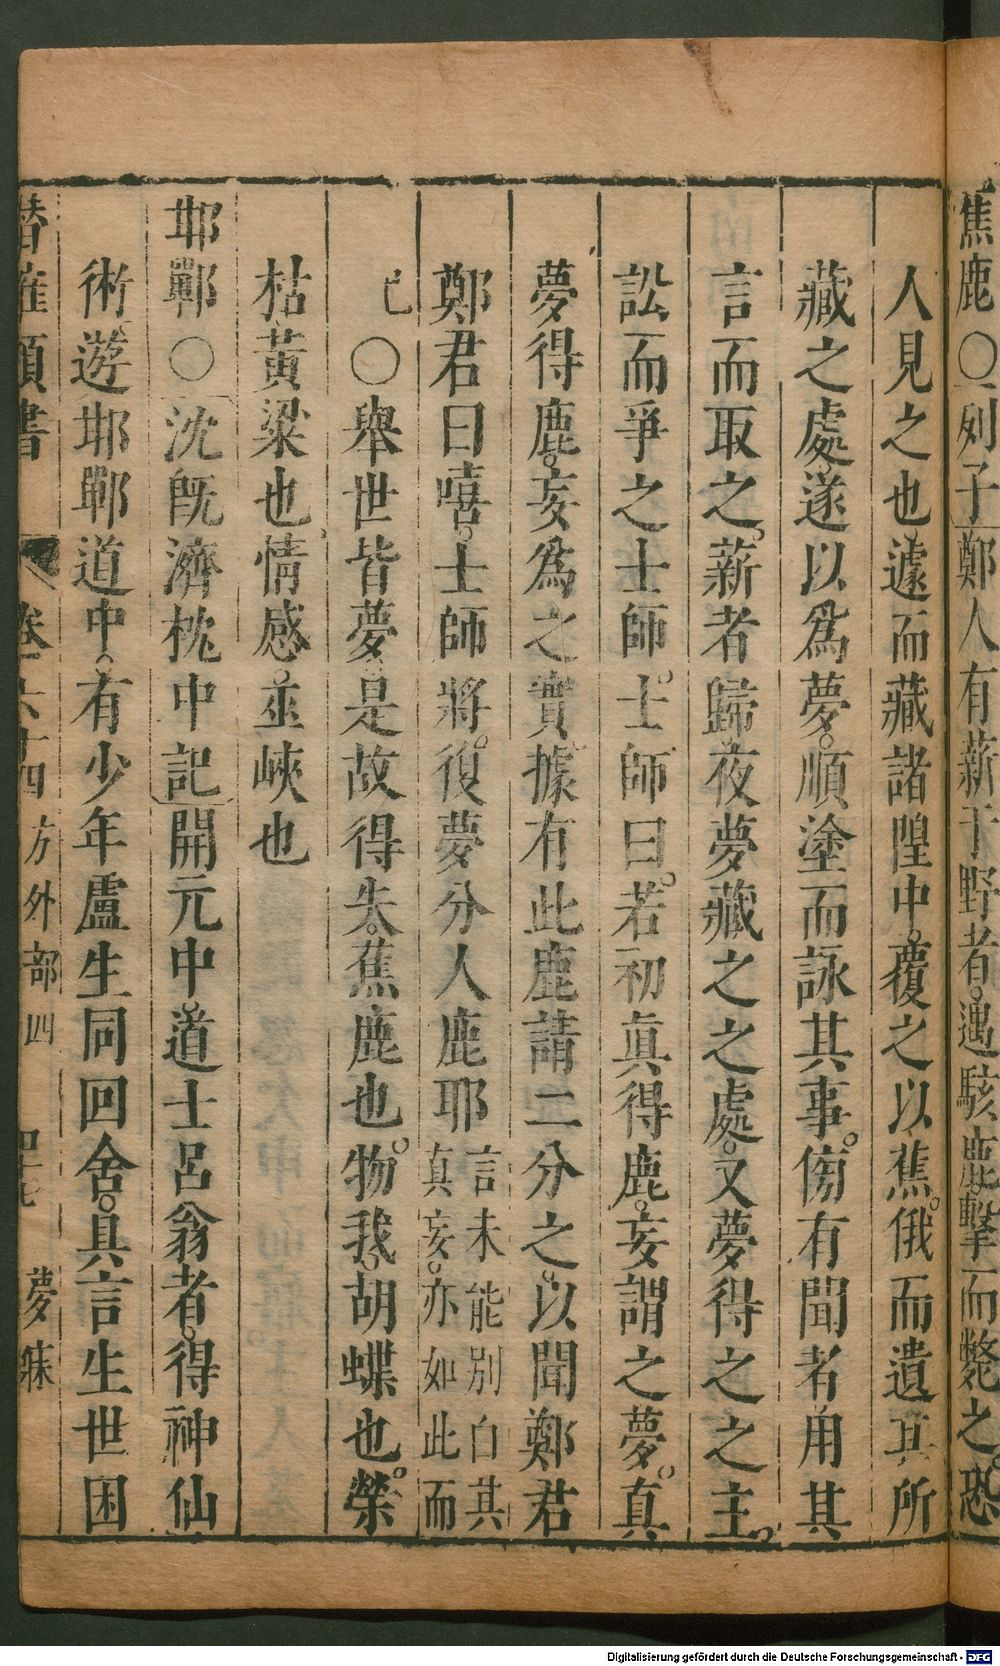 蕉鹿〇列子鄭人有薪于野者遇駭鹿擊而斃之恐
人見之也遽而藏諸隍中覆之以蕉俄而遺其所
藏之處遂以爲夢順塗而詠其事傍有聞者用其
言而取之薪者歸夜夢藏之之處又夢得之之主
訟而爭之士師士師曰若初眞得鹿妄謂之夢真
夢得鹿妄爲之實據有此鹿請二分之以聞鄭君
鄭君曰嘻士師將復夢分人鹿耶言未能別白其真妄亦如此而
已〇舉世皆夢是故得失蕉鹿也物我胡蝶也榮
枯黃粱也情感巫峽也
邯鄲〇沈旣濟枕中記開元中道士呂翁者得神仙
術遊邯鄲道中有少年盧生同回舍具言生世困
卷六十四 方外部四 夢寐
Digitalisierung gefördert durch die Deutsche Forschungsgemeinschaft - DFG